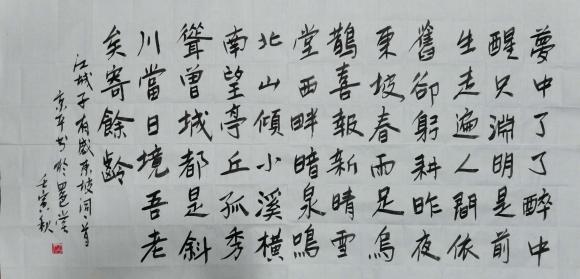 夢中了了醉中
醒只淵明是前
生走遍人間依
舊卻躬耕昨夜
東坡春雨足烏
鵲喜報新晴雪
堂西畔暗泉鳴
北山傾小溪橫
南望亭丘孤秀
聳曾城都是斜
川當日境吾老
矣寄餘齡
江城子有感东坡词一首
京平书於邕
壬寅秋